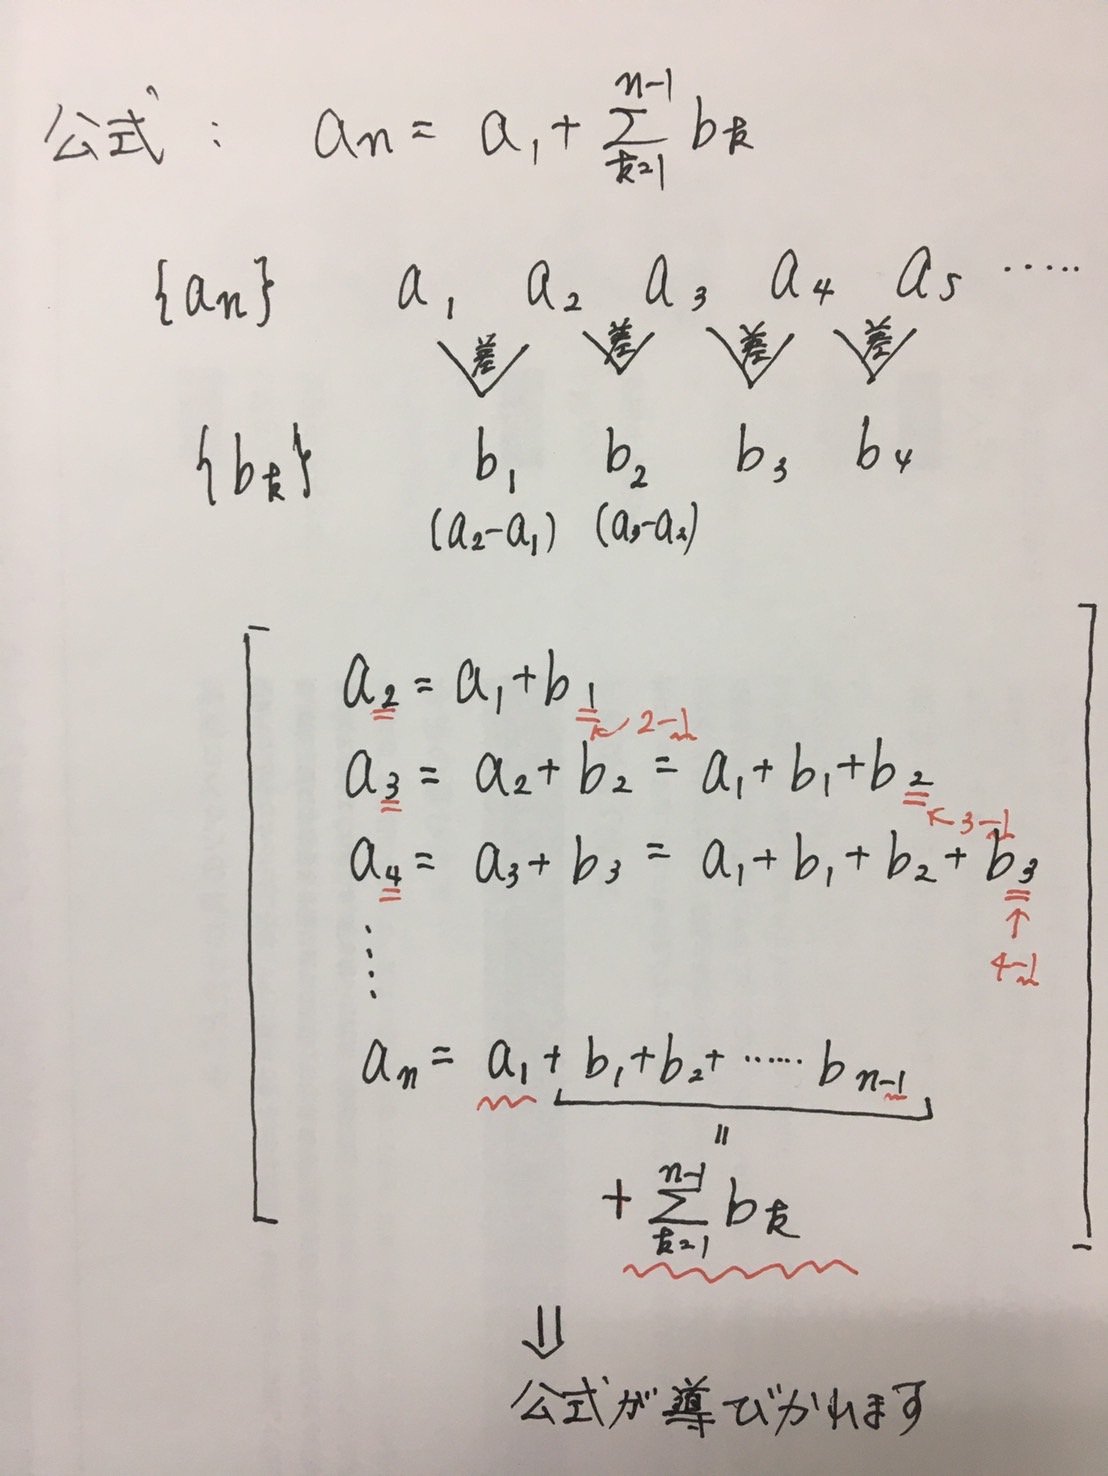 公式: an = a₁ + Σ[k=1→n-1] bk
{an} a₁ a₂ a₃ a₄ a₅ ‥‥‥
差 差 差 差
{bk} b₁ b₂ b₃ b₄
(a₂-a₁) (a₃-a₂)
a₂ = a₁ + b₁
↖ 2-1
a₃ = a₂ + b₂ = a₁ + b₁ + b₂
↖ 3-1
a₄ = a₃ + b₃ = a₁ + b₁ + b₂ + b₃
↑
4-1
⋮
an = a₁ + b₁ + b₂ + ‥‥‥ bn-1
॥
+ Σ[k=1→n-1] bk
⇓
公式が導びかれます